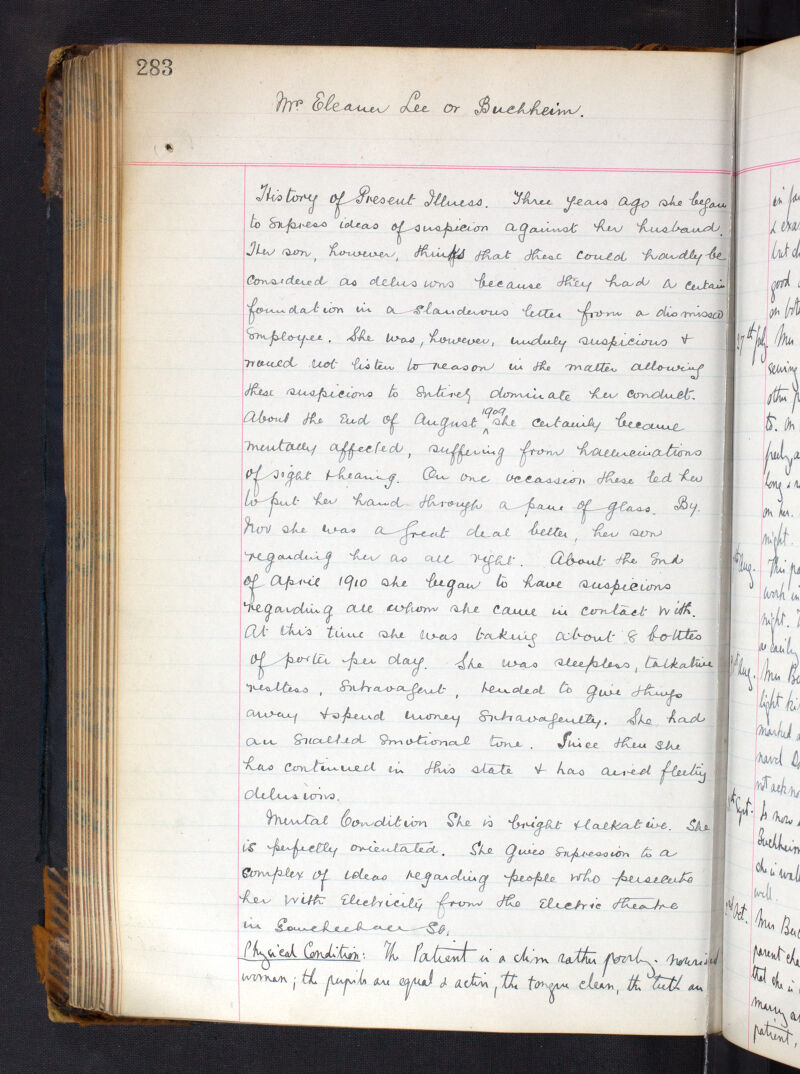 283
Mrs Eleanor Lee or Buchheim.
History of Present Illness. Three years ago she began
to express ideas of suspicion against her husband.
Her son, however, thinks that these could hardly be
considered as delusions because they had a certain
foundation in a slanderous letter from a dismissed
employee. She was, however, unduly suspicious &
would not listen to reason in the matter allowing
these suspicions to entirely dominate her conduct.
About the end of August 1909 she certainly became
mentally affected, suffering from hallucinations
of sight & hearing. On one occassion these led her
to put her hand through a pane of glass. By
Nov she was a great deal better, her son
regarding her as all right. About the end
of April 1910 she began to have suspicions
regarding all whom she came in contact with.
At this time she was taking about 8 bottles
of porter per day. She was sleepless, talkative
restless, extravagent, tended to give things
away & spend money extravagently. She had
an exalted emotional tone. Since then she
has continued in this state & has aired fleeting
delusions.
Mental Condition She is bright & talkative. She
is perfectly orientated. She gives expression to a
complex of ideas regarding people who persecute
her with Electricity from the Electric theatre
in Sauchiehall St.
Physical Condition: The Patient is a slim rather poorly nourished
woman; the pupils are equal & active, the tongue clean, the teeth are
but
good
27th July
Mrs
sewing
night.
Aug.
night.
Aug.
Sept.
Buchheim
well.
2nd Oct.
Mrs
that she is
patient,